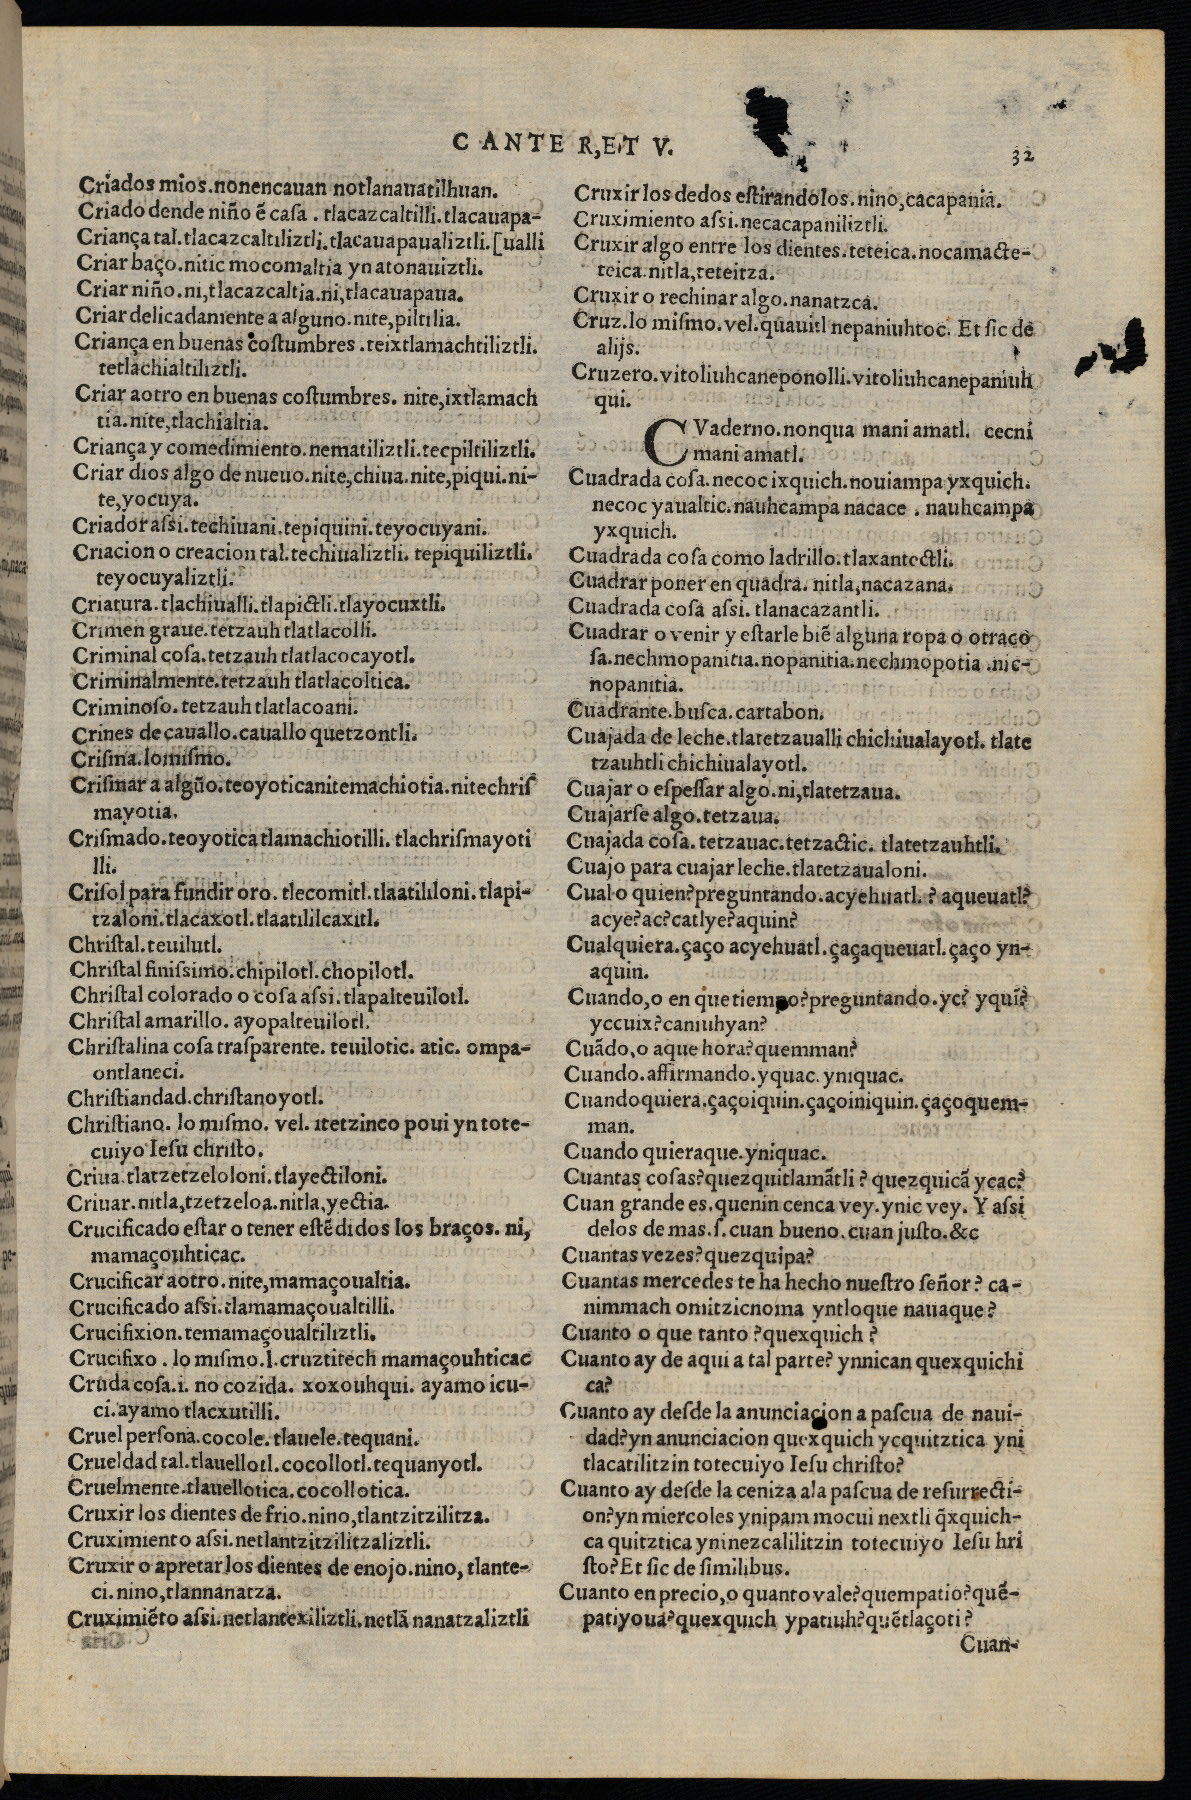 C ANTE R,ET V.
32
Criados mios.nonencauan notlanauatilhuan.
Criado dende niño ẽ casa . tlacazcaltilli.tlacauapa-
Criança tal.tlacazcaltiliztli.tlacauapaualiztli.[ualli
Criar baço.nitic mocomaltia yn atonauiztli.
Criar niño.ni,tlacazcaltia.ni,tlacauapaua.
Criar delicadamente a alguno.nite,piltilia.
Criança en buenas costumbres .teixtlamachtiliztli.
tetlachialtiliztli.
Criar aotro en buenas costumbres. nite,ixtlamach
tia.nite,tlachialtia.
Criança y comedimiento.nematiliztli.tecpiltiliztli.
Criar dios algo de nueuo.nite,chiua.nite,piqui.ni-
te,yocuya.
Criador assi.techiuani.tepiquini.teyocuyani.
Criacion o creacion tal.techiualiztli. tepiquiliztli.
teyocuyaliztli.
Criatura.tlachiualli.tlapictli.tlayocuxtli.
Crimen graue.tetzauh tlatlacolli.
Criminal cosa.tetzauh tlatlacocayotl.
Criminalmente.tetzauh tlatlacoltica.
Criminoso.tetzauh tlatlacoani.
Crines de cauallo.cauallo quetzontli.
Crisma.lomismo.
Crismar a algũo.teoyoticanitemachiotia.nitechris
mayotia.
Crismado.teoyotica tlamachiotilli. tlachrismayoti
lli.
Crisol para fundir oro. tlecomitl.tlaatililoni.tlapi-
tzaloni.tlacaxotl.tlaatililcaxitl.
Christal.teuilutl.
Christal finissimo.chipilotl.chopilotl.
Christal colorado o cosa assi.tlapalteuilotl.
Christal amarillo. ayopalteuilotl.
Christalina cosa trasparente. teuilotic. atic. ompa-
ontlaneci.
Christiandad.christanoyotl.
Christiano. lo mismo. vel. itetzinco poui yn tote-
cuiyo Iesu christo.
Criua.tlatzetzeloloni.tlayectiloni.
Criuar.nitla,tzetzeloa.nitla,yectia.
Crucificado estar o tener estẽdidos los braços. ni,
mamaçouhticac.
Crucificar aotro.nite,mamaçoualtia.
Crucificado assi.tlamamaçoualtilli.
Crucifixion.temamaçoualtiliztli.
Crucifixo . lo mismo.l.cruztitech mamaçouhticac
Cruda cosa.i. no cozida. xoxouhqui. ayamo icu-
ci.ayamo tlacxutilli.
Cruel persona.cocole.tlauele.tequani.
Crueldad tal.tlauellotl.cocollotl.tequanyotl.
Cruelmente.tlauellotica.cocollotica.
Cruxir los dientes de frio.nino,tlantzitzilitza.
Cruximiento assi.netlantzitzilitzaliztli.
Cruxir o apretar los dientes de enojo.nino, tlante-
ci.nino,tlannanatza.
Cruximiẽto assi.netlantexiliztli.netlã nanatzaliztli
Cruxir los dedos estirandolos.nino,cacapania.
Cruximiento assi.necacapaniliztli.
Cruxir algo entre los dientes.teteica.nocamacte-
teica.nitla,teteitza.
Cruxir o rechinar algo.nanatzca.
Cruz.lo mismo.vel.quauitl nepaniuhtoc. Et sic de
alijs.
Cruzero.vitoliuhcaneponolli.vitoliuhcanepaniuh
qui.
CVaderno.nonqua mani amatl. cecni
mani amatl.
Cuadrada cosa.necoc ixquich.nouiampa yxquich.
necoc yaualtic.nauhcampa nacace . nauhcampa
yxquich.
Cuadrada cosa como ladrillo.tlaxantectli.
Cuadrar poner en quadra. nitla,nacazana.
Cuadrada cosa assi. tlanacazantli.
Cuadrar o venir y estarle biẽ alguna ropa o otraco
sa.nechmopanitia.nopanitia.nechmopotia .nic-
nopanitia.
Cuadrante.busca.cartabon.
Cuajada de leche.tlatetzaualli chichiualayotl. tlate
tzauhtli chichiualayotl.
Cuajar o espessar algo.ni,tlatetzaua.
Cuajarse algo.tetzaua.
Cuajada cosa. tetzauac.tetzactic. tlatetzauhtli.
Cuajo para cuajar leche.tlatetzaualoni.
Cual o quien?preguntando.acyehuatl. ? aqueuatl?
acye?ac?catlye?aquin?
Cualquiera.çaço acyehuatl.çaçaqueuatl.çaço yn-
aquin.
Cuando,o en que tiempo?preguntando.yc? yquĩ?
yccuix?caniuhyan?
Cuãdo,o aque hora?quemman?
Cuando.affirmando.yquac.yniquac.
Cuandoquiera.çaçoiquin.çaçoiniquin.çaçoquem-
man.
Cuando quieraque.yniquac.
Cuantas cosas?quezquitlamãtli ? quezquicã ycac?
Cuan grande es.quenin cenca vey.ynic vey. Y assi
delos de mas.s.cuan bueno.cuan justo.&c
Cuantas vezes?quezquipa?
Cuantas mercedes te ha hecho nuestro señor? ca-
nimmach omitzicnoma yntloque nauaque?
Cuanto o que tanto ?quexquich ?
Cuanto ay de aqui a tal parte? ynnican quexquichi
ca?
Cuanto ay desde la anunciacion a pascua de naui-
dad?yn anunciacion quexquich ycquitztica yni
tlacatilitzin totecuiyo Iesu christo?
Cuanto ay desde la ceniza ala pascua de resurrecti-
on?yn miercoles ynipam mocui nextli q̃xquich-
ca quitztica yninezcalilitzin totecuiyo Iesu hri
sto?Et sic de similibus.
Cuanto en precio,o quanto vale?quempatio?quẽ-
patiyoua?quexquich ypatiuh?quẽtlaçoti?
Cuan-